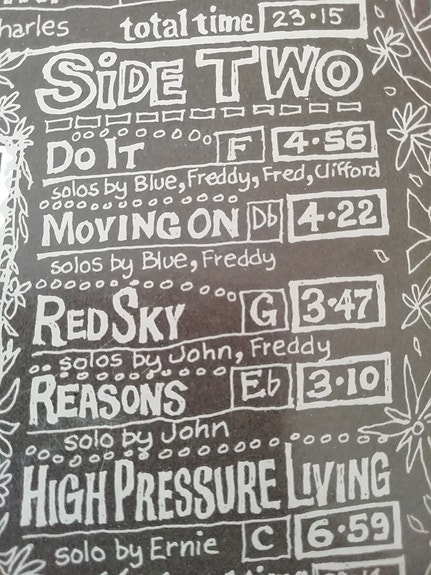 harles total time 23·15
SiDE TWO
Do It F 4·56
solos by Blue, Freddy, Fred, Clifford
MOVING ON Db 4·22
solos by Blue, Freddy
RED SKY G 3·47
solos by John, Freddy
REASONS Eb 3·10
solo by John
HIGH PRESSURE LIVING
solo by Ernie C 6·59